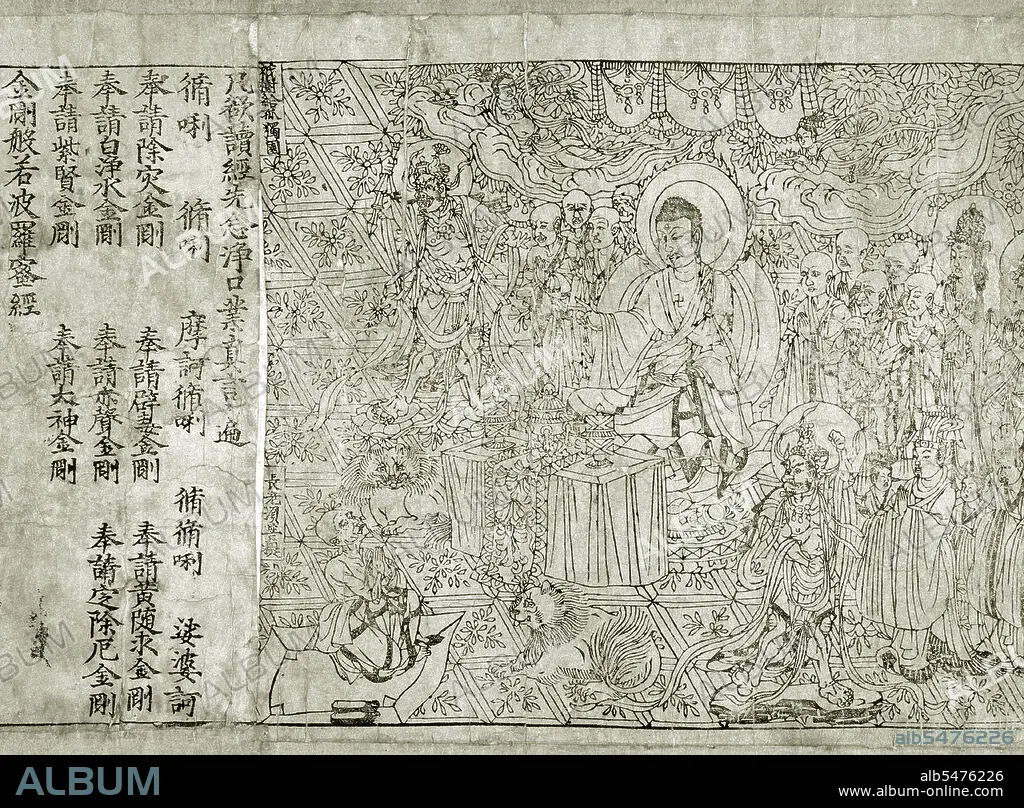 祇樹給孤獨園
長老須菩提
凡欲讀經先念淨口業真言一遍
脩唎 脩唎 摩訶脩唎 脩脩唎 娑婆訶
奉請除灾金剛 奉請辟毒金剛 奉請黃隨求金剛
奉請白淨水金剛 奉請赤聲金剛 奉請定除厄金剛
奉請紫賢金剛 奉請大神金剛
金剛般若波羅蜜經
ALBUM
alb5476226
ALBUM
alb5476226
www.album-online.com